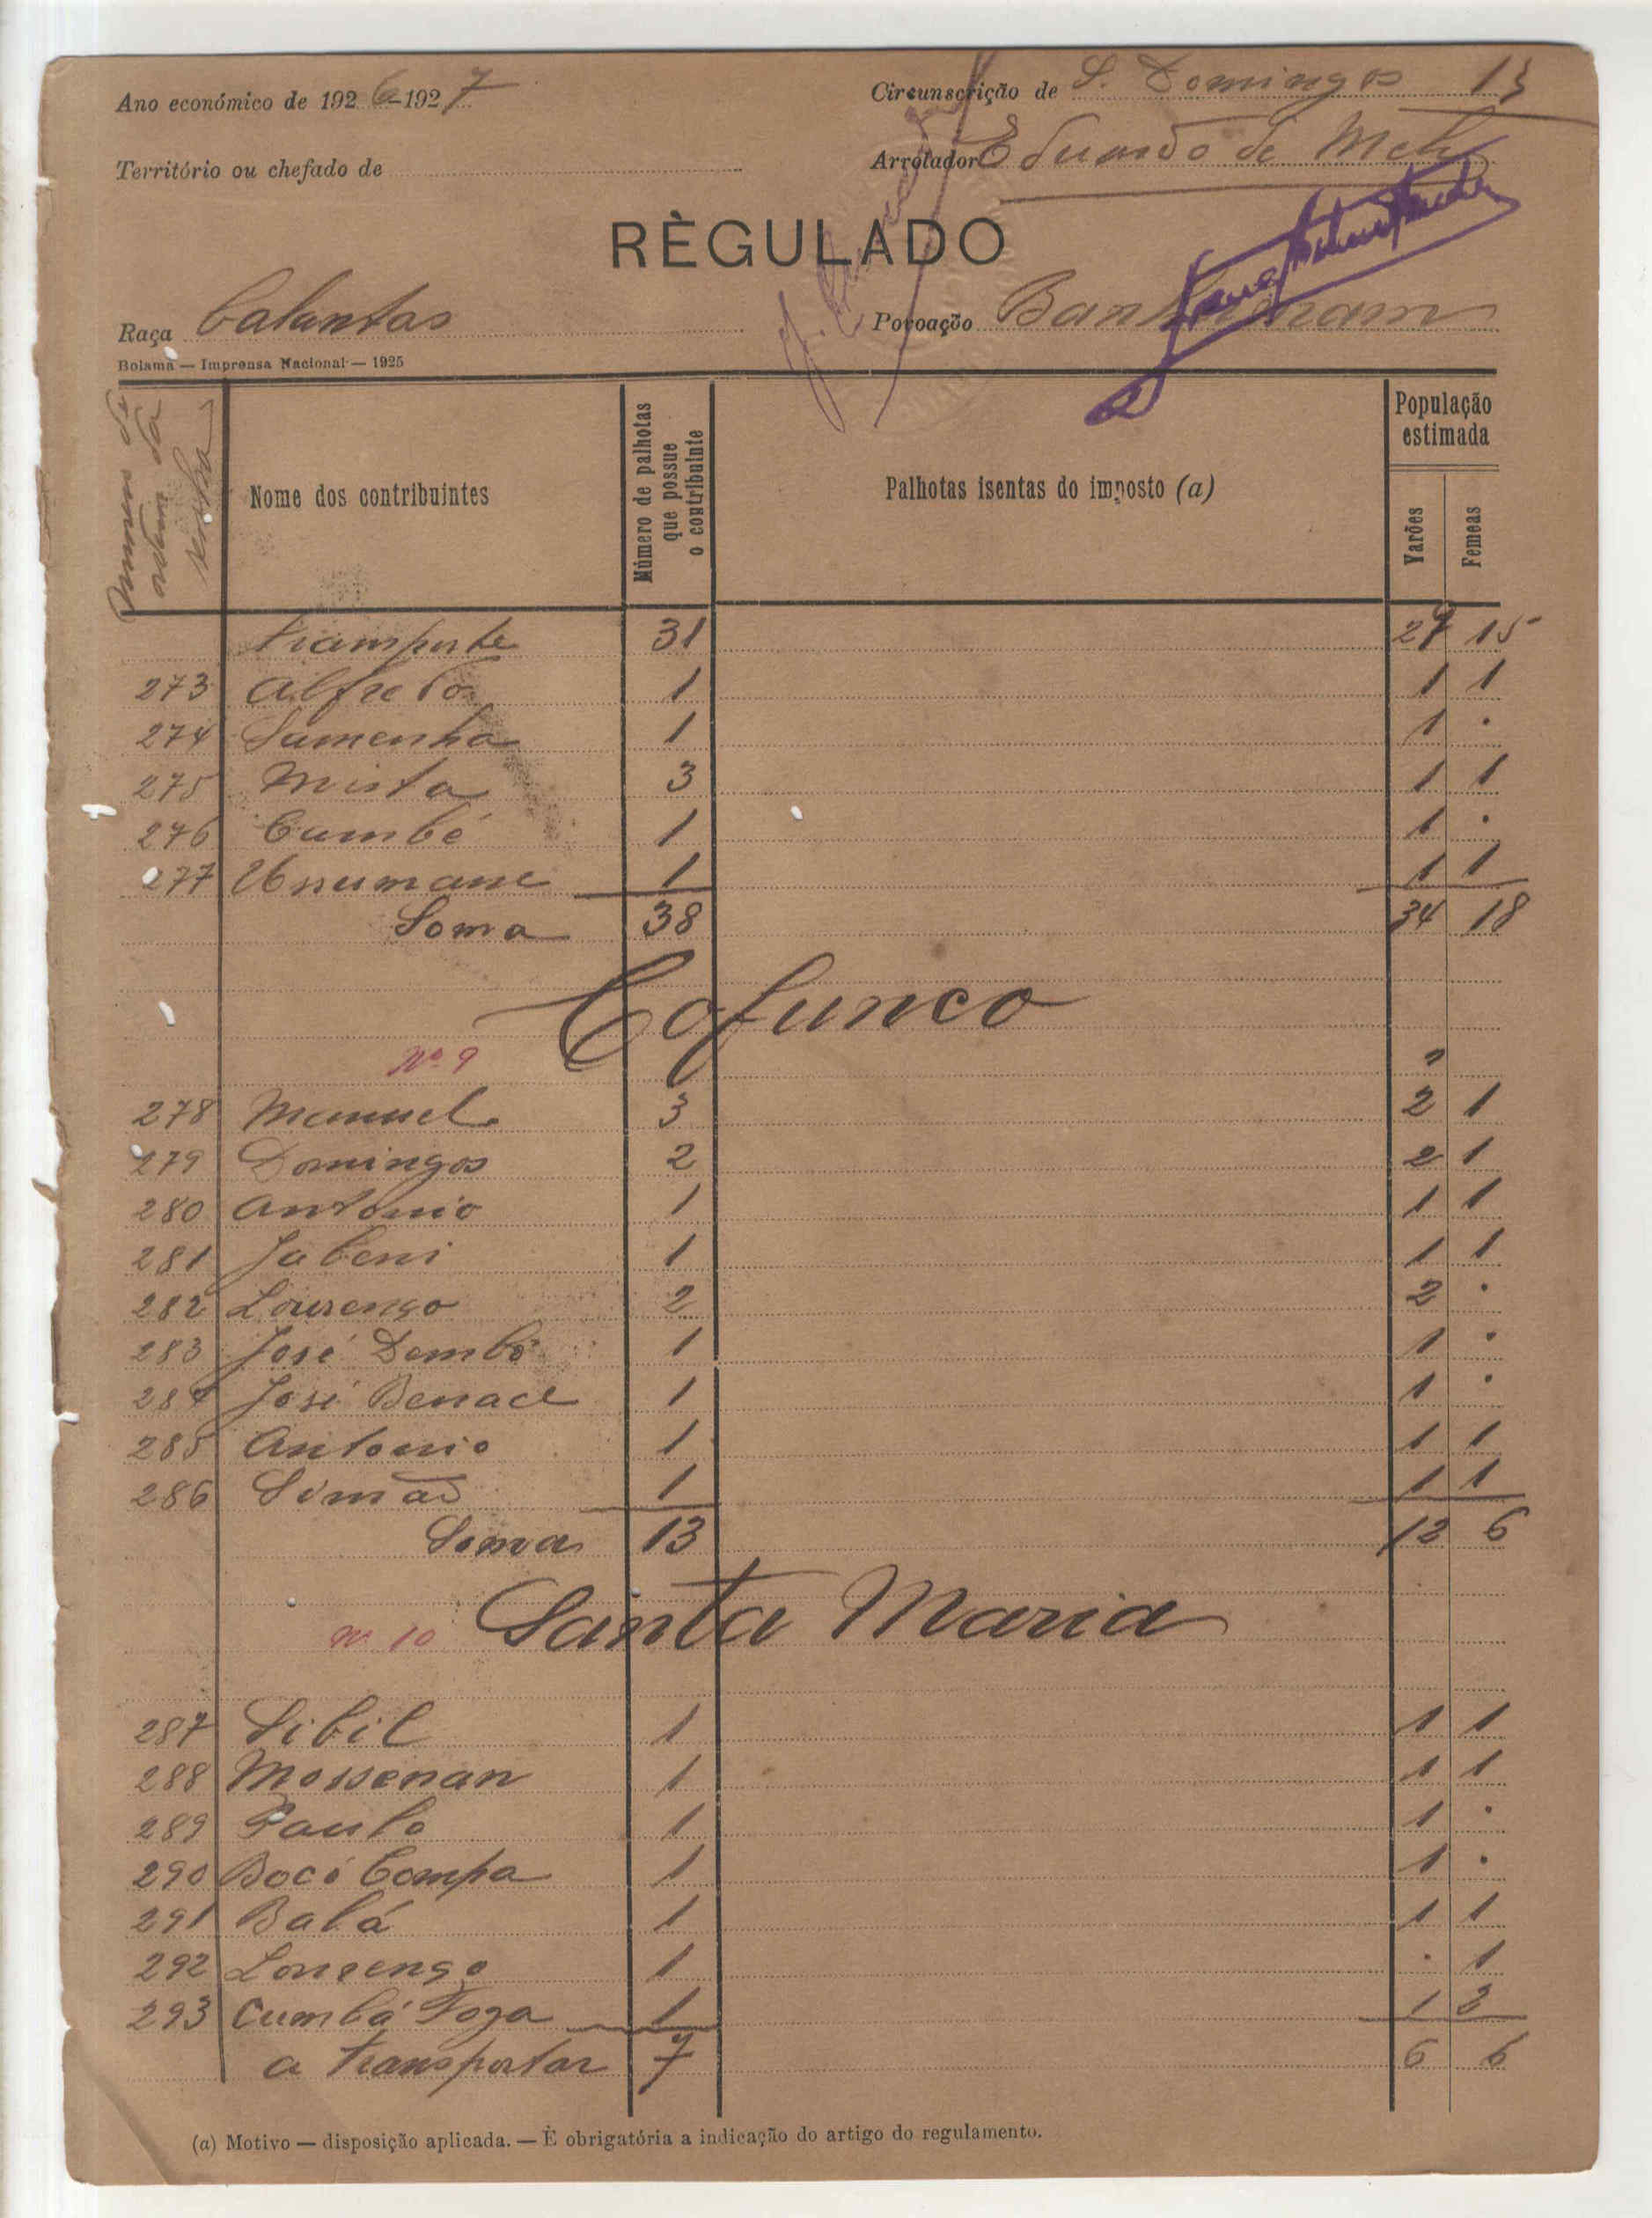 Ano económico de 1926-1927
Circunscrição de S. Domingos 13
Território ou chefado de
Arrolador Eduardo de Melo
RÈGULADO
Raça Balantas
Povoação
Bolama — Imprensa Nacional — 1925
Numero de
ordem
Nome dos contribuintes
Número de palhotas
que possue
o contribuinte
Palhotas isentas do imposto (a)
População
estimada
Varões
Femeas
Transporte 31 29 15
273 Alfredo 1 1 1
274 Samenha 1 1 .
275 Mista 3 1 1
276 Cumbé 1 1 .
277 Ussumane 1 1 1
Soma 38 34 18
Cofunco
Nº 9
278 Manuel 3 2 1
279 Domingos 2 2 1
280 Antonio 1 1 1
281 Jabeni 1 1 1
282 Lourenço 2 2 .
283 José Dembó 1 1 .
284 José Benael 1 1 .
285 Antonio 1 1 1
286 Simão 1 1 1
Soma 13 12 6
Nº 10 Santa Maria
287 Sibil 1 1 1
288 Mossenan 1 1 1
289 Paulo 1 1 .
290 Bocó Compa 1 1 .
291 Balá 1 1 1
292 Lourenço 1 . 1
293 Cumbá Toga 1 1 2
a transportar 7 6 6
(a) Motivo — disposição aplicada. — É obrigatória a indicação do artigo do regulamento.